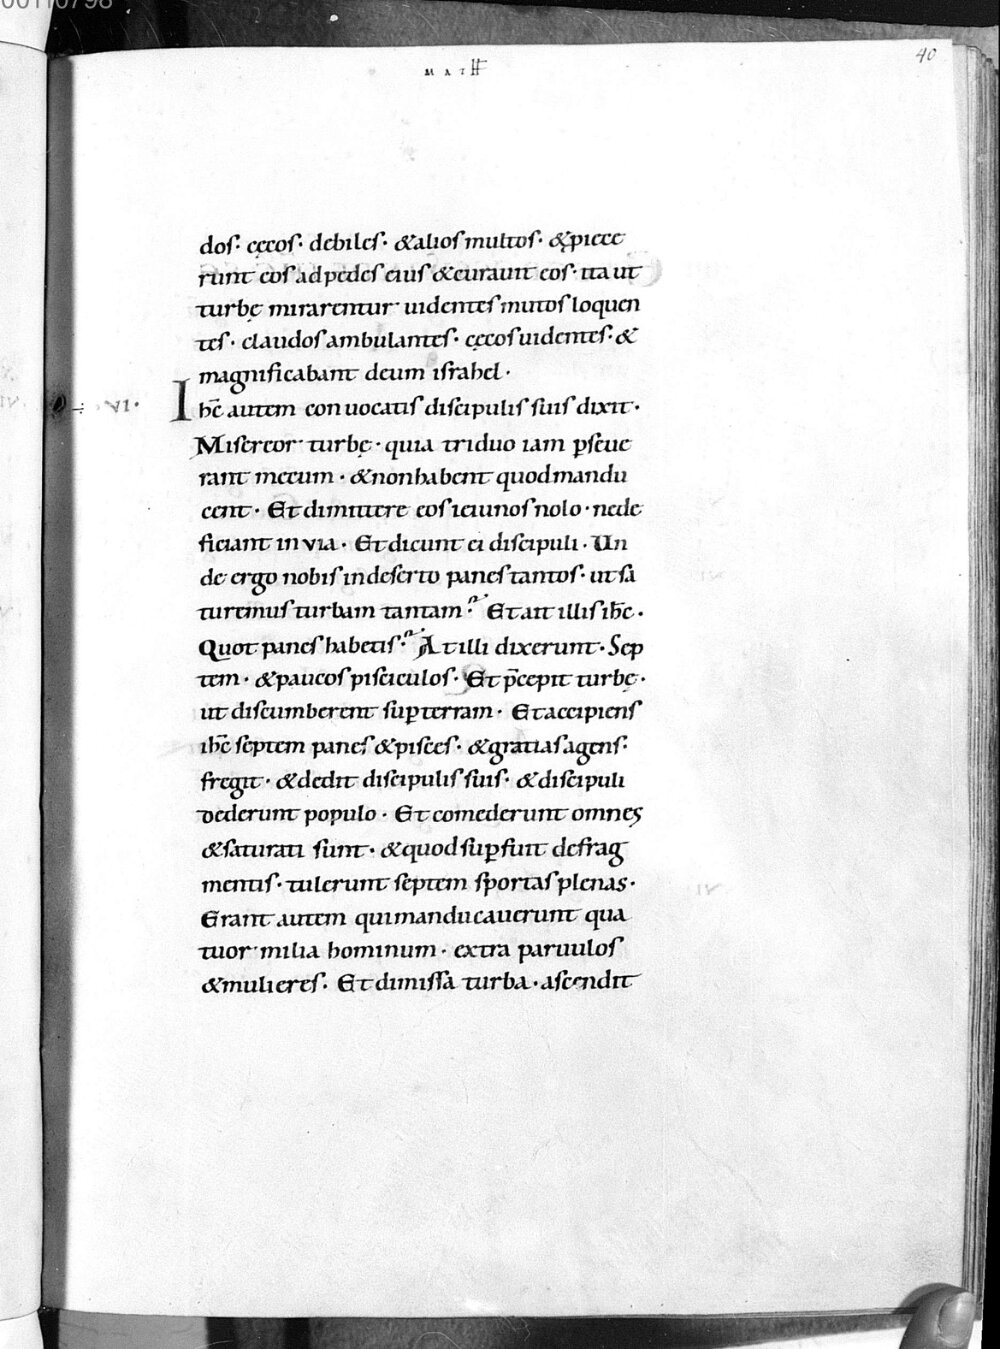 00110798
MATH
40
dos· cęcos· debiles· &alios multos· &piece
runt eos ad pedes eius & curauit eos· ita ut
turbę mirarentur uidentes mutos loquen
tes· claudos ambulantes· cęcos uidentes· &
magnificabant deum israhel·
÷ VI·
Ihc̄ autem conuocatis discipulis suis dixit·
Misereor turbę· quia triduo iam ꝑseue
rant mecum· & non habent quod mandu
cent· Et dimittere eos ieiunos nolo· ne de
ficiant in via· Et dicunt ei discipuli· Un
de ergo nobis in deserto panes tantos· ut sa
turemus turbam tantam? Et ait illis ihc̄·
Quot panes habetis? At illi dixerunt· Sep
tem· & paucos pisciculos· Et p̄cepit turbę·
ut discumberent suꝑ terram· Et accipiens
ihc̄ septem panes & pisces· & gratias agens·
fregit· & dedit discipulis suis· & discipuli
dederunt populo· Et comederunt omnes
& saturati sunt· & quod suꝑfuit de frag
mentis· tulerunt septem sportas plenas·
Erant autem qui manducauerunt qua
tuor milia hominum· extra paruulos
& mulieres· Et dimissa turba· ascendit